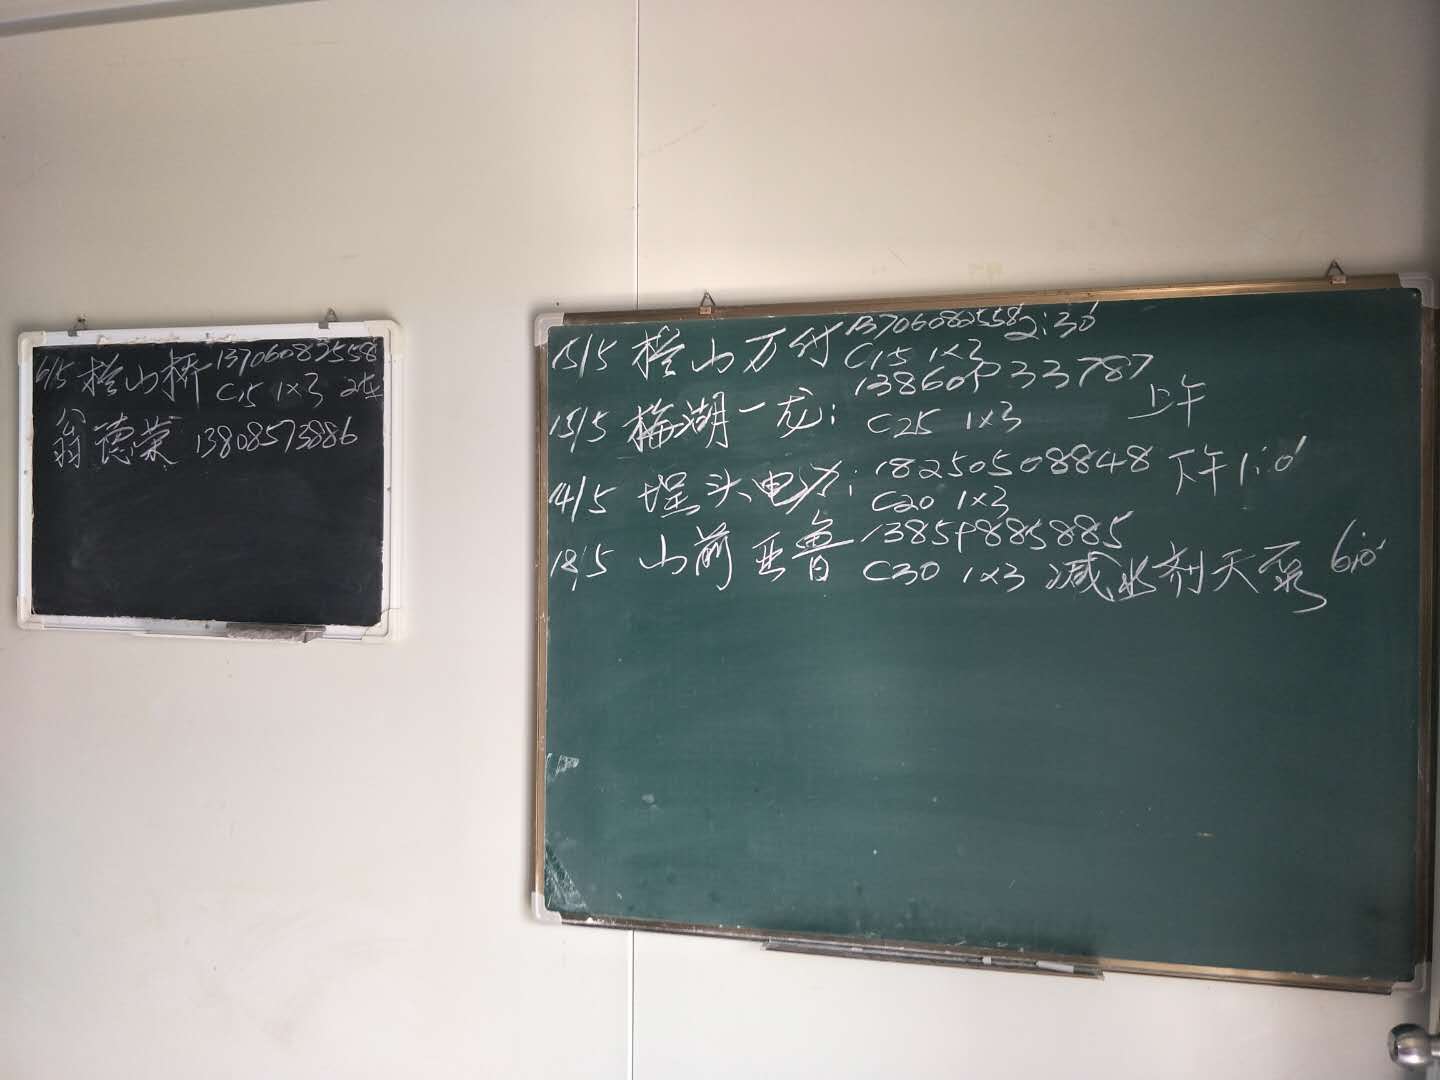 6/5 桧山桥 13706082558
C15 1×3
翁德荣 13808573886
15/5 桧山万付 13706082558 2:30
C15 1×3
15/5 梅湖一龙: 13860933787 上午
C25 1×3
14/5 埕头电力: 18250508848 下午1:0
C20 1×3
18/5 山前亚鲁 13859885885
C30 1×3 减水剂天泵 6:0